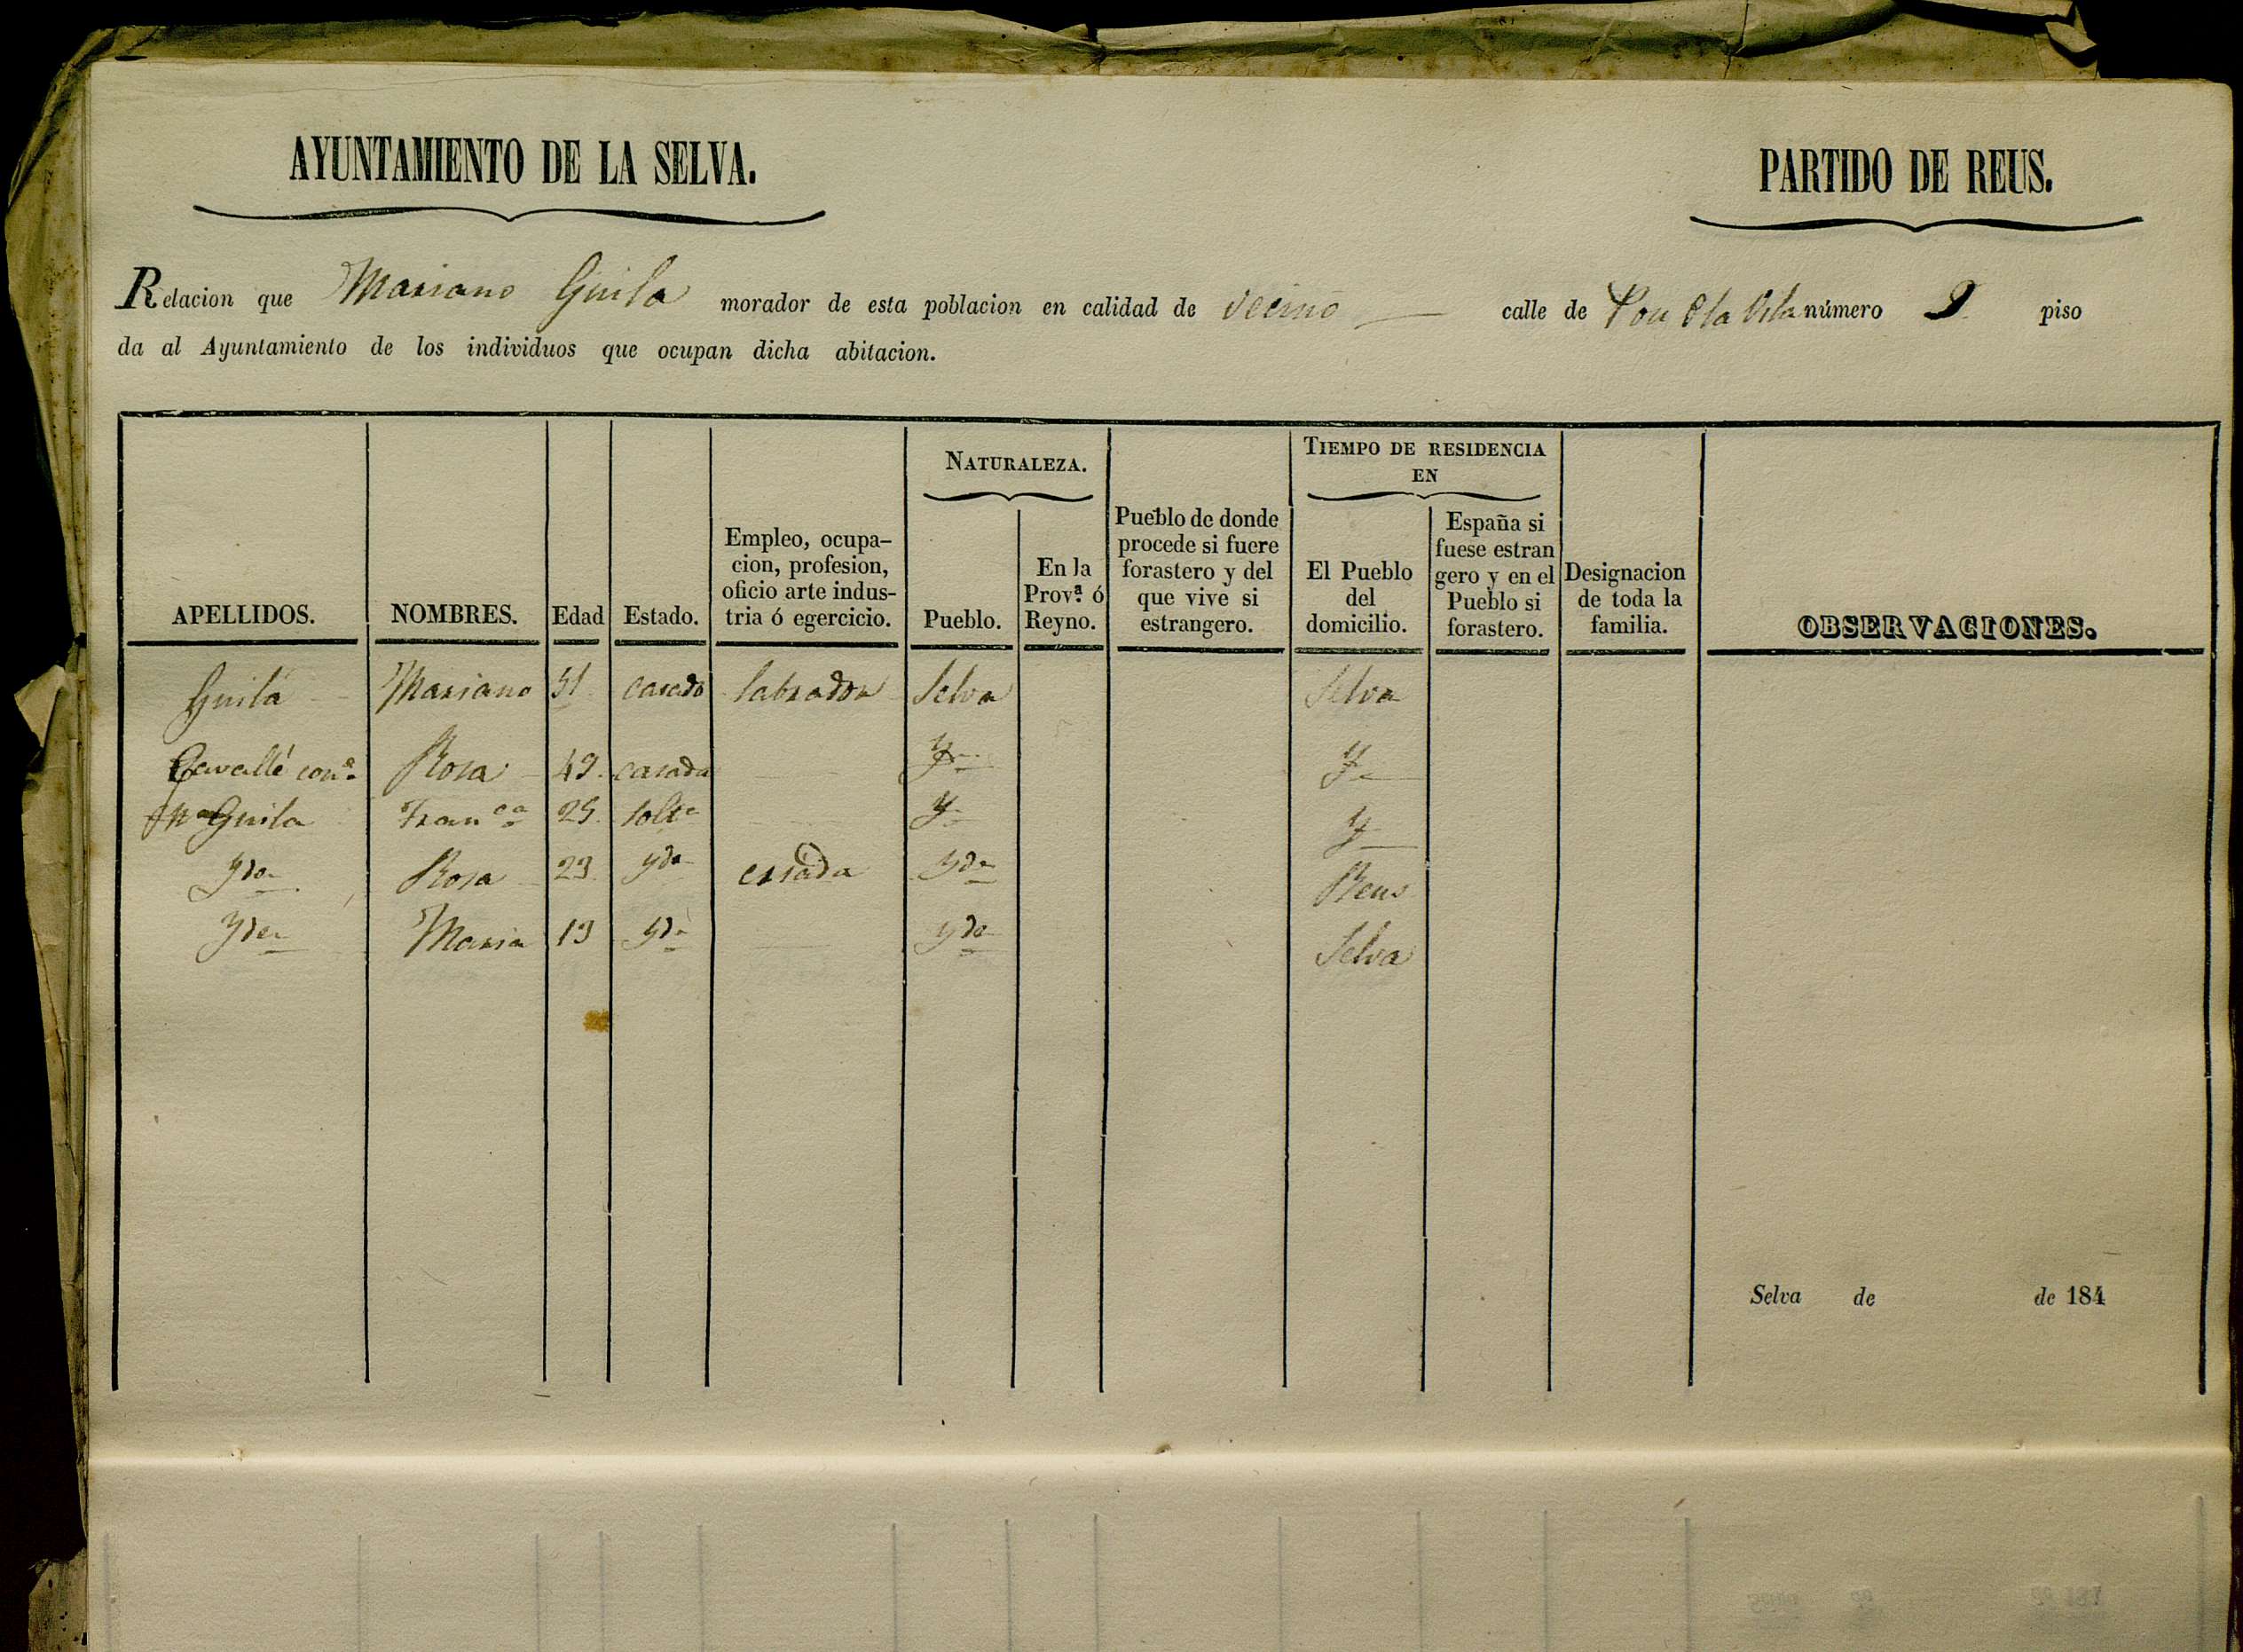 AYUNTAMIENTO DE LA SELVA. PARTIDO DE REUS.
Relacion que Mariano Guila morador de esta poblacion en calidad de vecino calle de Pou dla Vila número 9 piso
da al Ayuntamiento de los individuos que ocupan dicha abitacion.
NATURALEZA. TIEMPO DE RESIDENCIA EN
APELLIDOS. NOMBRES. Edad Estado. Empleo, ocupa- cion, profesion, oficio arte indus- tria ó egercicio. Pueblo. En la Prov.ª ó Reyno. Pueblo de donde procede si fuere forastero y del que vive si estrangero. El Pueblo del domicilio. España si fuese estran gero y en el Pueblo si forastero. Designacion de toda la familia. OBSERVACIONES.
Guilá Mariano 51 casado labrador Selva Selva
Cavallé con.e Rosa 49 casada Y Y
Guila Fran.ca 25 solt.a Y Y
Yda Rosa 23 yda criada yda Reus
Yda Maria 19 yda yda Selva
Selva de de 184